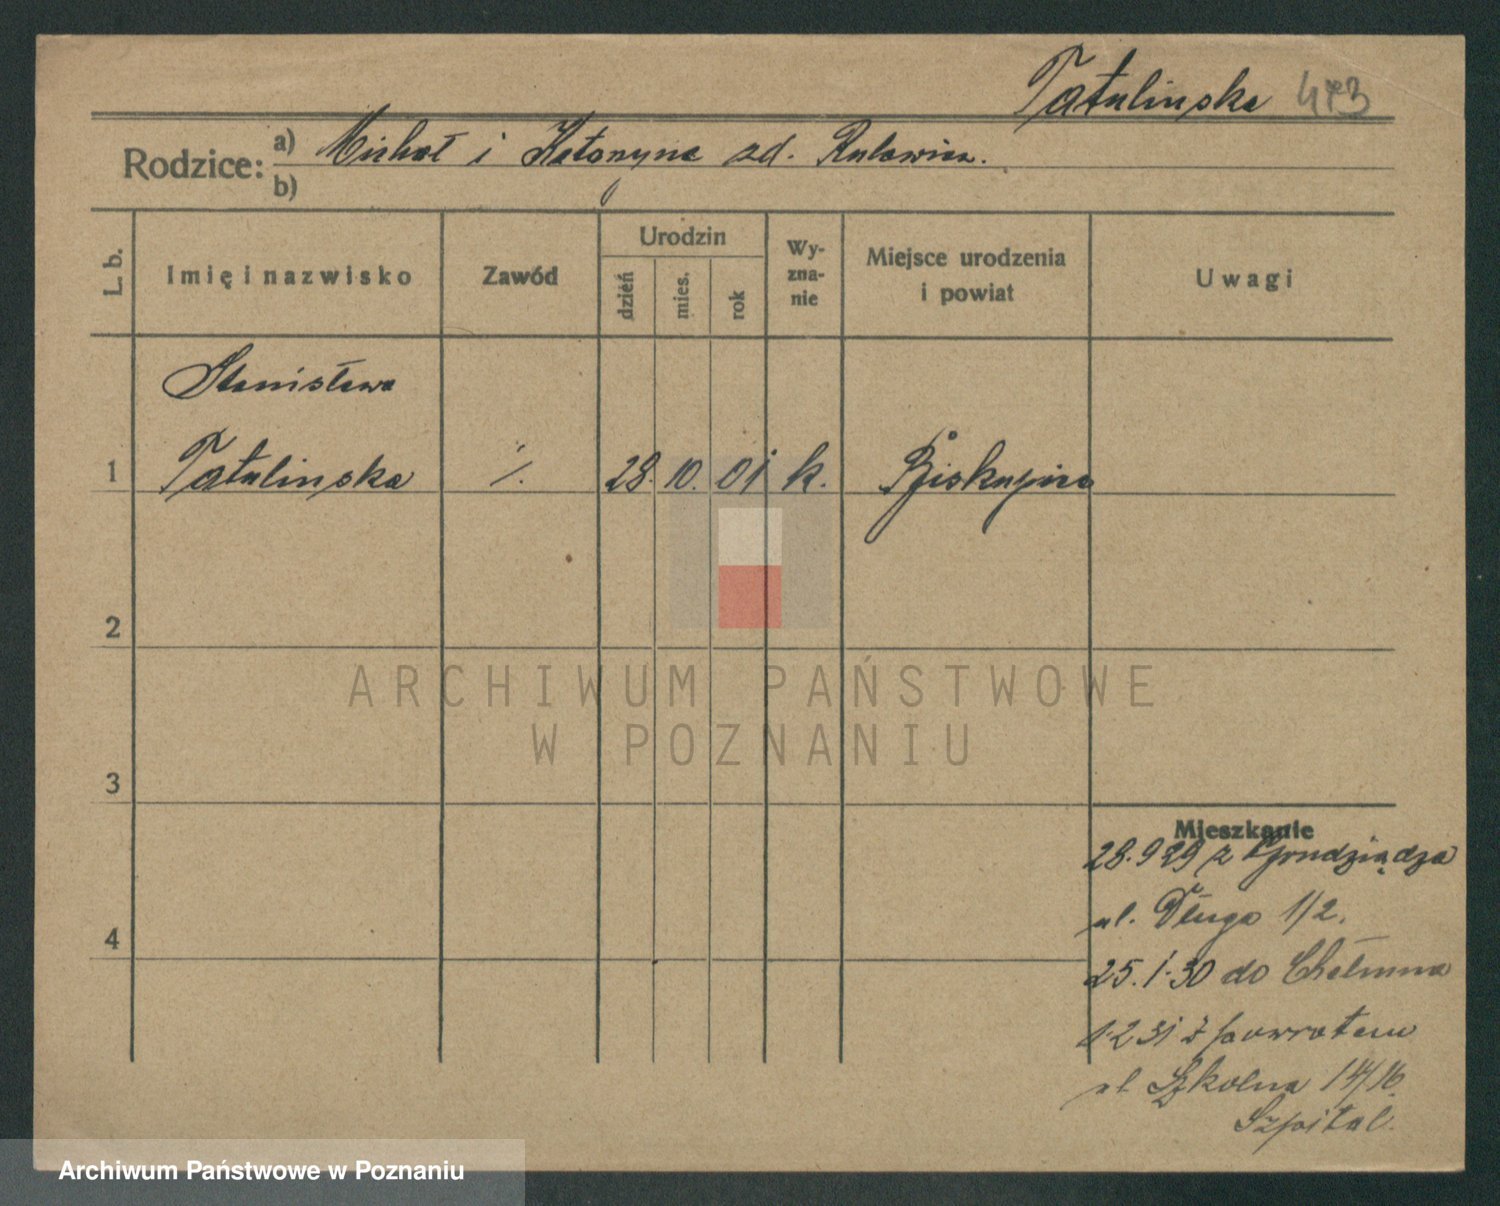 Tatulinska 473
Rodzice: a) Michał i Katarzyna zd.
b)
L. b.
Imię i nazwisko
Zawód
Urodzin
dzień
mies.
rok
Wy-
zna-
nie
Miejsce urodzenia
i powiat
Uwagi
Stanisława
1 Tatulinska ./. 28. 10. 01 k. Biskupice
2
3
4
Mieszkanie
28.9 29 z Grudziądza
ul. Długa 1/2.
25.1.30 do Chełmna
1.2 31 z powrotem
ul. Szkolna 14/16.
Szpital.
ARCHIWUM PAŃSTWOWE
W POZNANIU
Archiwum Państwowe w Poznaniu